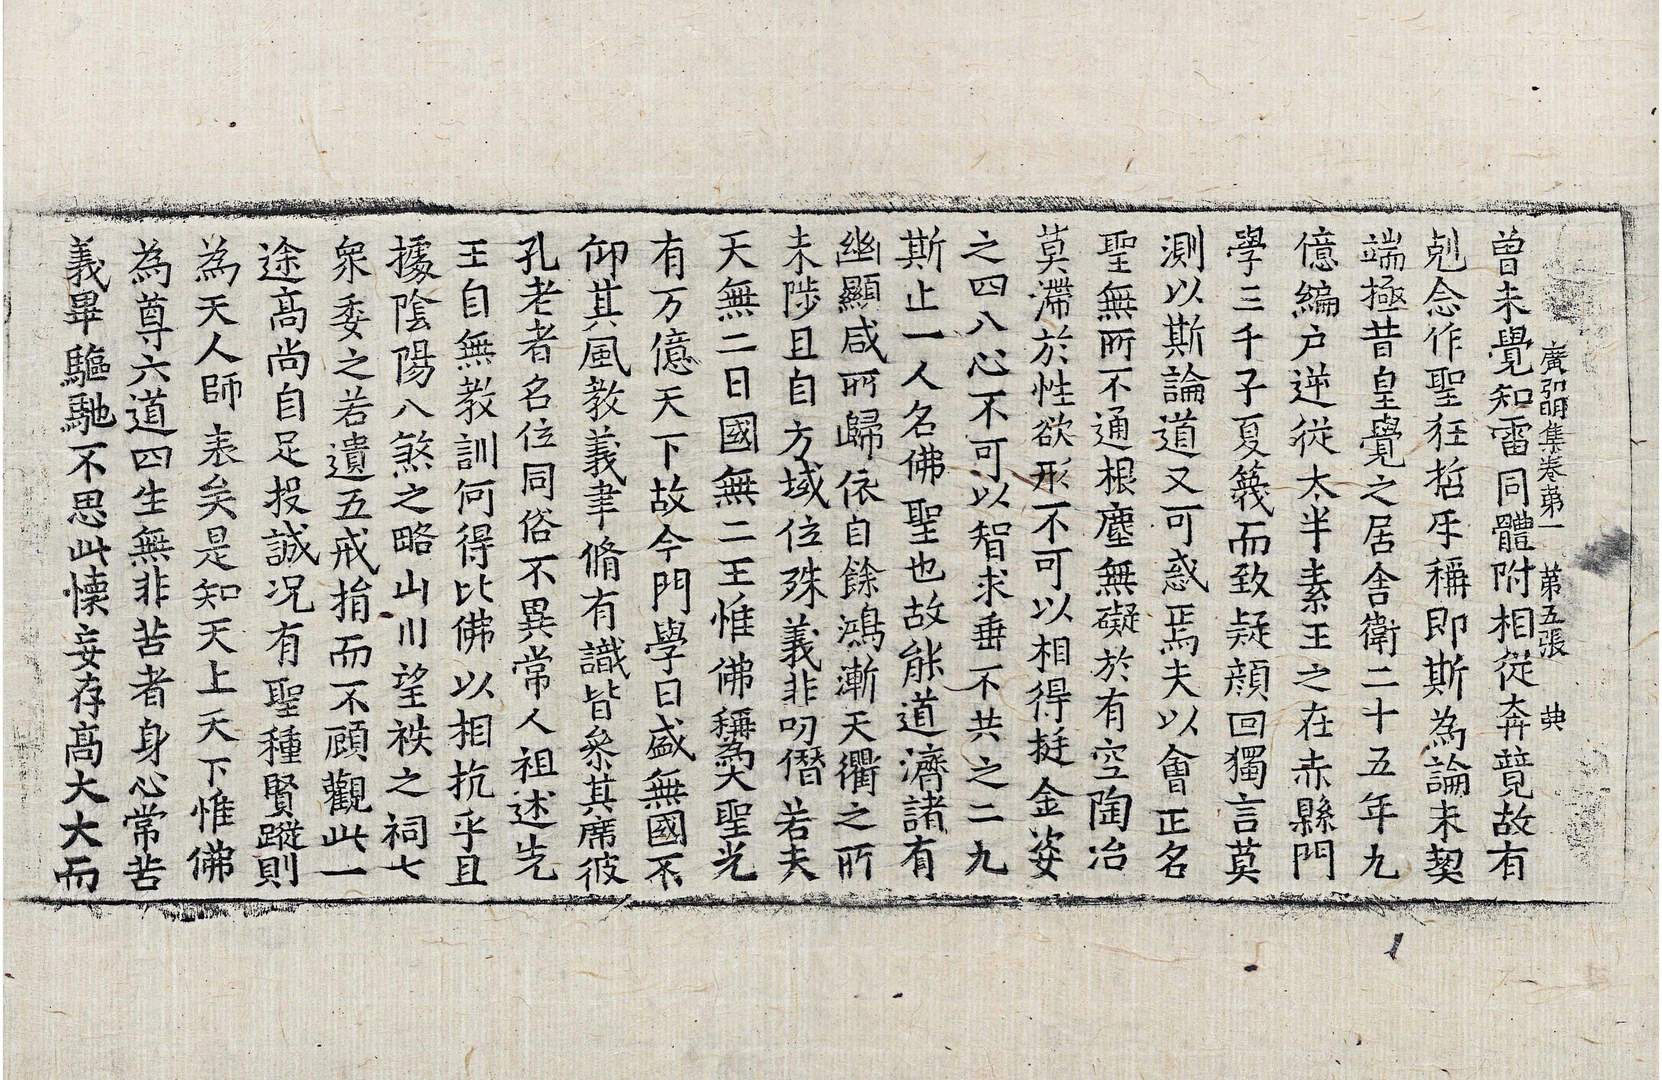 廣弘明集卷第一　第五張　典
曾未覺知雷同體附相從奔競故有
剋念作聖狂哲牙稱即斯為論未契
端極昔皇覺之居舍衛二十五年九
億編户逆從太半素王之在赤縣門
學三千子夏蟻而致疑顔回獨言莫
測以斯論道又可惑焉夫以會正名
聖無所不通根塵無礙於有空陶冶
莫滯於性欲形不可以相得挺金姿
之四八心不可以智求垂不共之二九
斯止一人名佛聖也故能道濟諸有
幽顯咸所歸依自餘鴻漸天衢之所
未陟且自方域位殊義非叨僭若夫
天無二日國無二王惟佛稱為大聖光
有万億天下故今門學日盛無國不
仰其風教義聿脩有識皆叅其席彼
孔老者名位同俗不異常人祖述先
王自無教訓何得比佛以相抗乎且
據陰陽八煞之略山川望秩之祠七
衆委之若遺五戒捐而不顧觀此一
途高尚自足投誠况有聖種賢蹤則
為天人師表矣是知天上天下惟佛
為尊六道四生無非苦者身心常苦
義畢驅馳不思此懷妄存高大大而